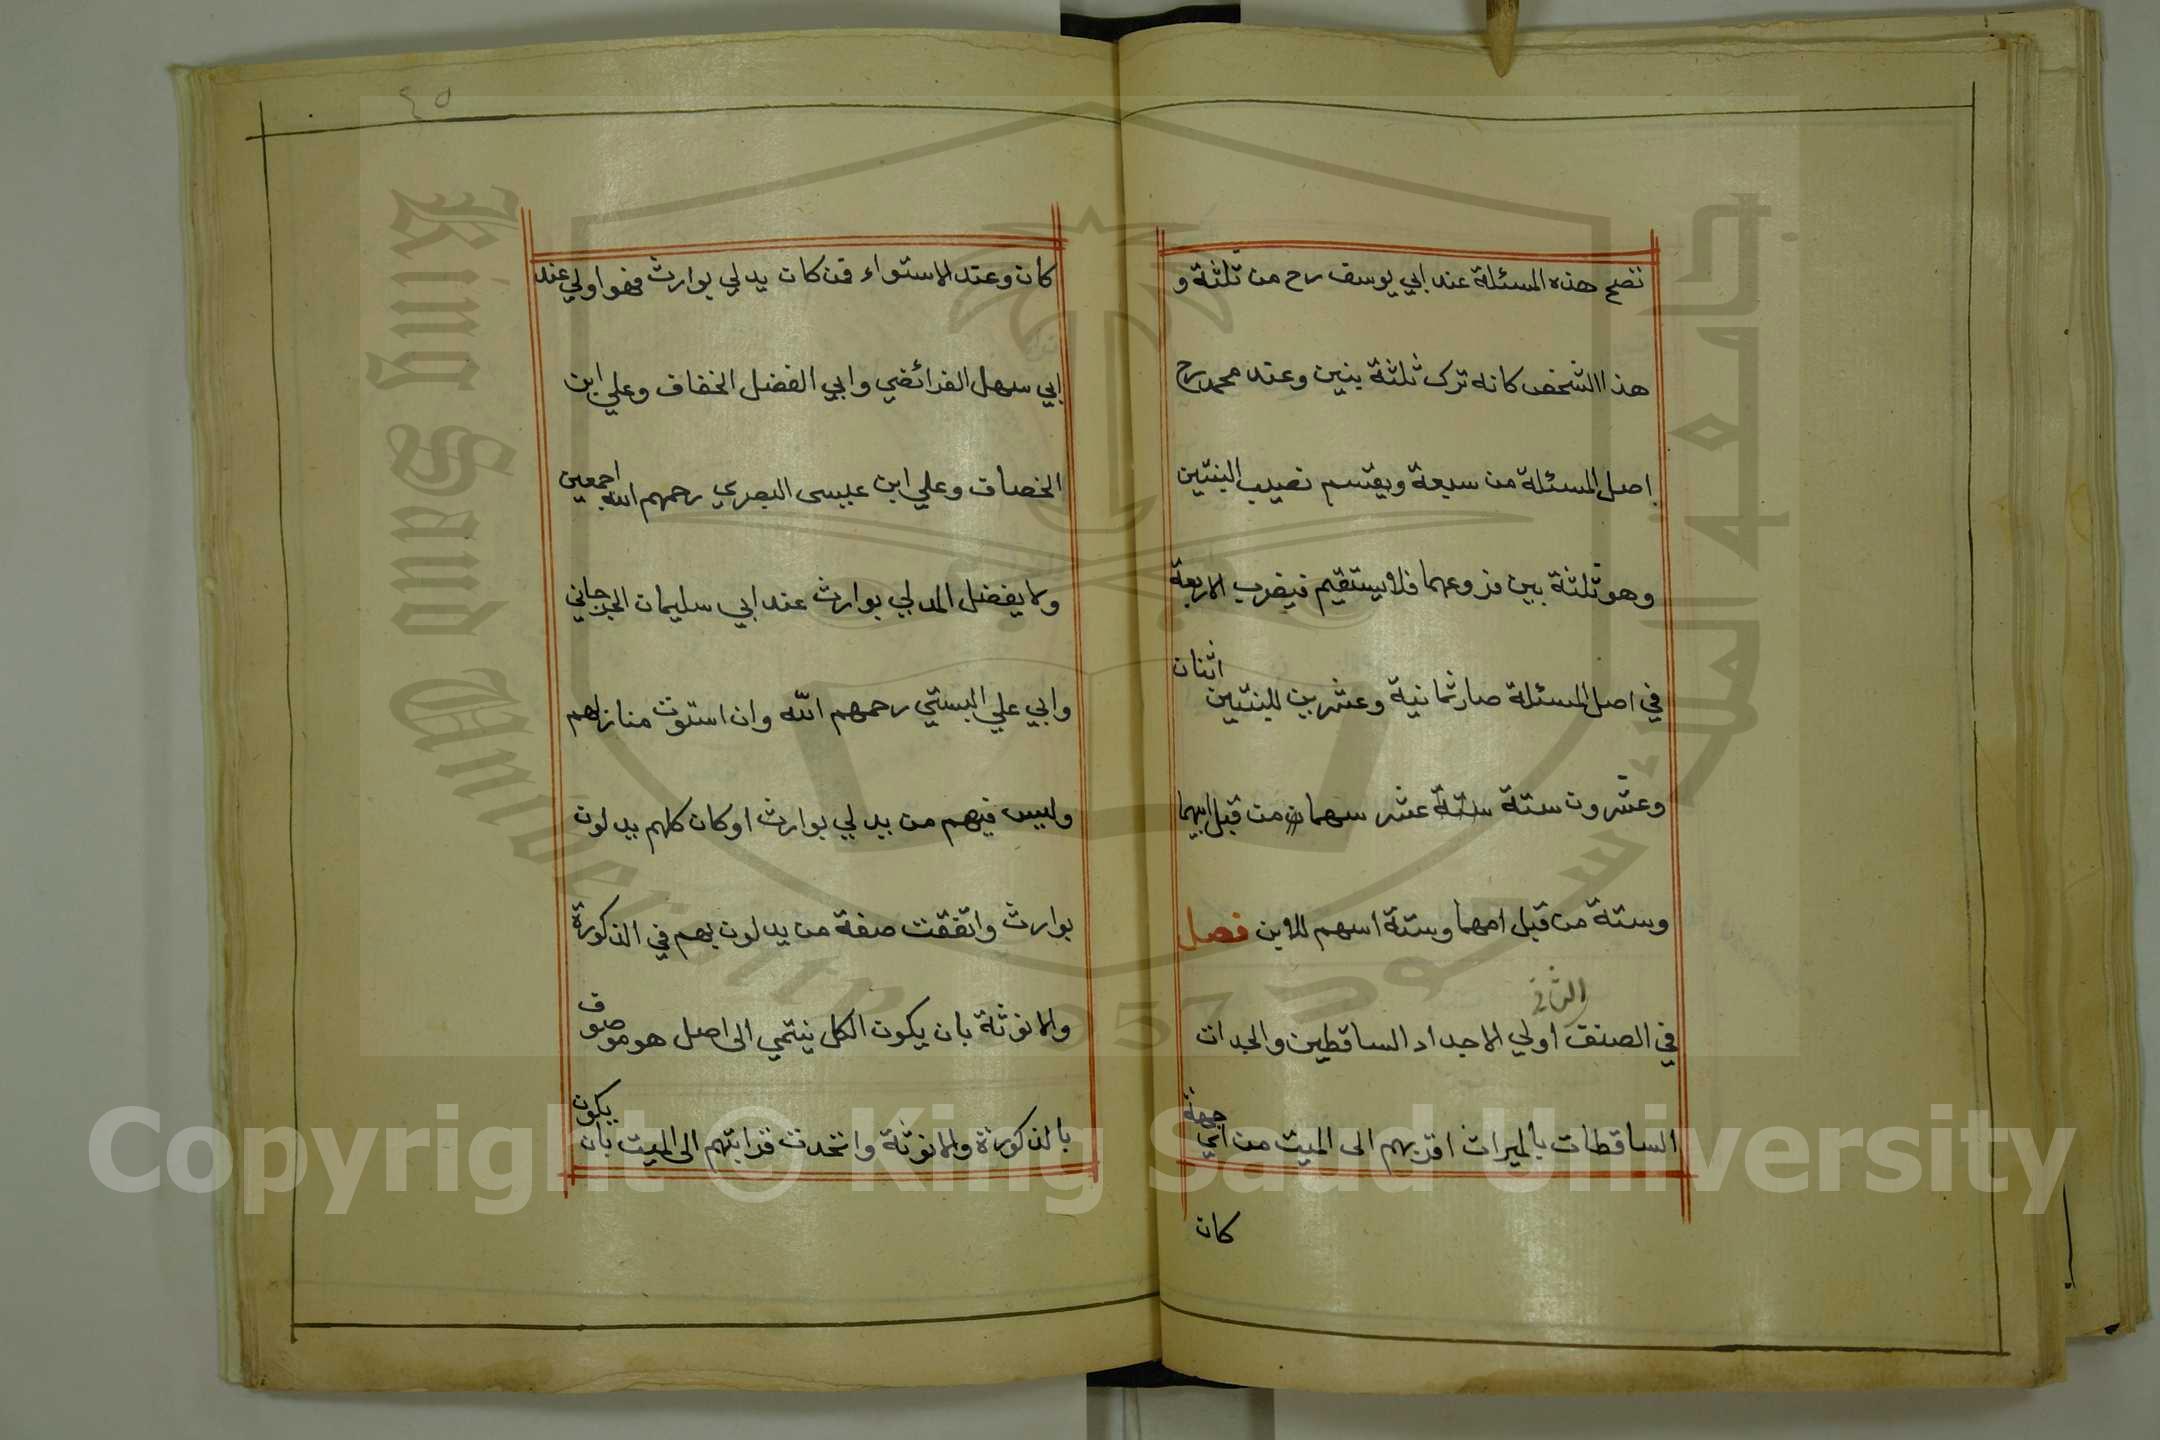 تصح هذه المسئلة عند ابي يوسف رح من ثلثة و
هذا الشخص كانه ترك ثلثة بنين وعند محمد رح
اصل المسئلة من سبعة ويقسم نصيب البنتين
وهو ثلثة بين فروعهما فلا يستقيم فيضرب الاربعة
في اصل المسئلة صار ثمانية وعشرين للبنتين اثنان
وعشرون ستة ستة عشر سهمان من قبل ابيهما
وستة من قبل امهما وستة اسهم للابن فصل
في الصنف الثاني اولي الاجداد الساقطين والجدات
الساقطات بالميراث اقربهم الى الميت من اي جهة
كان
٤٥
كان وعند الاستواء فمن كان يدلي بوارث فهو اولي عند
ابي سهل الفرائضي وابي الفضل الخفاف وعلي ابن
الخصاف وعلي ابن عيسى البصري رحمهم الله اجمعين
ولا يفضل المدلي بوارث عند ابي سليمان الجرجاني
وابي علي البستي رحمهم الله وان استوت منازلهم
وليس فيهم من يدلي بوارث او كان كلهم يدلون
بوارث واتفقت صفة من يدلون بهم في الذكورة
والانوثة بان يكون الكل ينتمي الى اصل هو موصوف
بالذكورة والانوثة واتحدت قرابتهم الى الميت بان يكون
King Saud University
جامعة الملك سعود
1957
Copyright © King Saud University